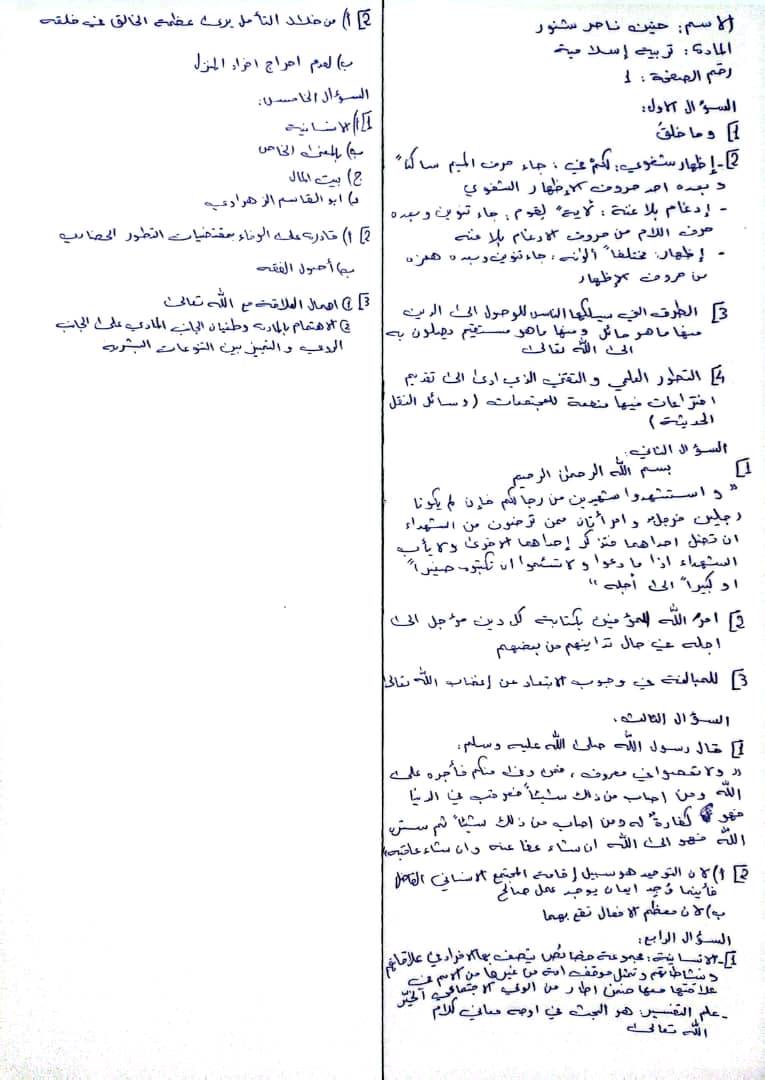 الاسم: حنين ناصر شنور
المادة: تربية إسلامية
رقم الصفحة: 1
السؤال الاول:
1] وما خلقَ
2]- إظهار شفوي: لكمْ في: جاء حرف الميم ساكناً
وبعده احد حروف الإظهار الشفوي
- إدغام بلا غنة: لآيةً لقوم: جاء تنوين وبعده
حرف اللام من حروف الادغام بلا غنة
- إظهار: مختلفاً ألوانه: جاء تنوين وبعده همزة
من حروف الإظهار
3] الطرق التي سيسلكها الناس للوصول الى الدين
منها ما هو مائل ومنها ماهو مستقيم يصلون به
الى الله تعالى
4] التطور العلمي والتقني الذي ادى الى تقديم
اختراعات فيها منفعة للمجتمعات (وسائل النقل
الحديثة)
السؤال الثاني:
1] بسم الله الرحمن الرحيم
" واستشهدوا شهيدين من رجالكم فإن لم يكونا
رجلين فرجل وامرأتان ممن ترضون من الشهداء
ان تضل احداهما فتذكر إحداهما الاخرى ولا يأب
الشهداء اذا ما دعوا ولا تسئموا ان تكتبوه صغيراً
او كبيراً الى أجله "
2] امر الله المؤمنين بكتابة كل دين مؤجل الى
اجله في حال تداينهم من بعضهم
3] للمبالغة في وجوب الابتعاد عن إغضاب الله تعالى
السؤال الثالث:
1] قال رسول الله صلى الله عليه وسلم:
" ولا تعصوا في معروف، فمن وفى منكم فأجره على
الله ومن اصاب من ذلك شيئاً فعوقب في الدنيا
فهو كفارة له ومن اصاب من ذلك شيئاً ثم ستره
الله فهو الى الله ان شاء عفا عنه وان شاء عاقبه"
2] أ) لان التوحيد هو سبيل إقامة المجتمع الانساني الفاضل
فأينما وُجِد ايمان يوجد عمل صالح
ب) لان معظم الافعال تقع بهما
السؤال الرابع:
1]- الانسانية: مجموعة خصائص يتصف بها الافراد في علاقاتهم
ونشاطاتهم وتمثل موقف امة من غيرها من الامم في
علاقتها معها ضمن اطار من الوعي الاجتماعي الخيّر
- علم التفسير: هو البحث في اوجه معاني كلام
الله تعالى
2] أ) من خلال التأمل يرى عظمة الخالق في خلقه
ب) لعدم احراج افراد المنزل
السؤال الخامس:
1] أ) الانسانية
ب) بالمعنى الخاص
ج) بيت المال
د) ابو القاسم الزهراوي
2] أ) قادرة على الوفاء بمقتضيات التطور الحضاري
ب) أصول الفقه
3] 1) اهمال العلاقة مع الله تعالى
2) الاهتمام بالمادة وطغيان الجانب المادي على الجانب
الروحي والتميز بين النوعات البشرية